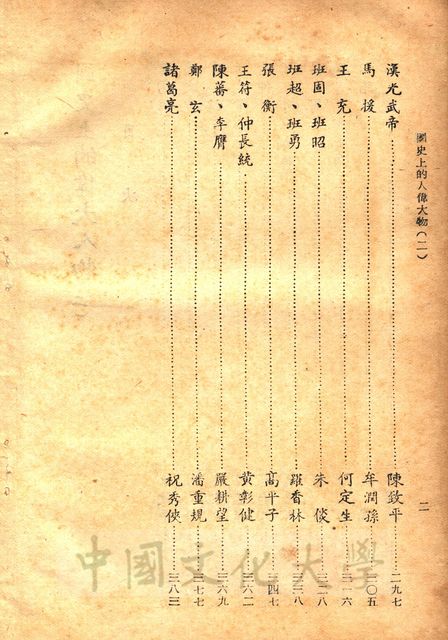 國史上的人偉大物(二)
二
漢光武帝 陳致平 二九七
馬援 牟潤孫 三〇五
王充 何定生 三一六
班固、班昭 朱倓
班超、班勇 羅香林
張衡 高平子 三四七
王符、仲長統 黃彰健 三六二
陳蕃、李膺 嚴耕望 三六九
鄭玄 潘重規 三七七
諸葛亮 祝秀俠 三八三
中國文化大學